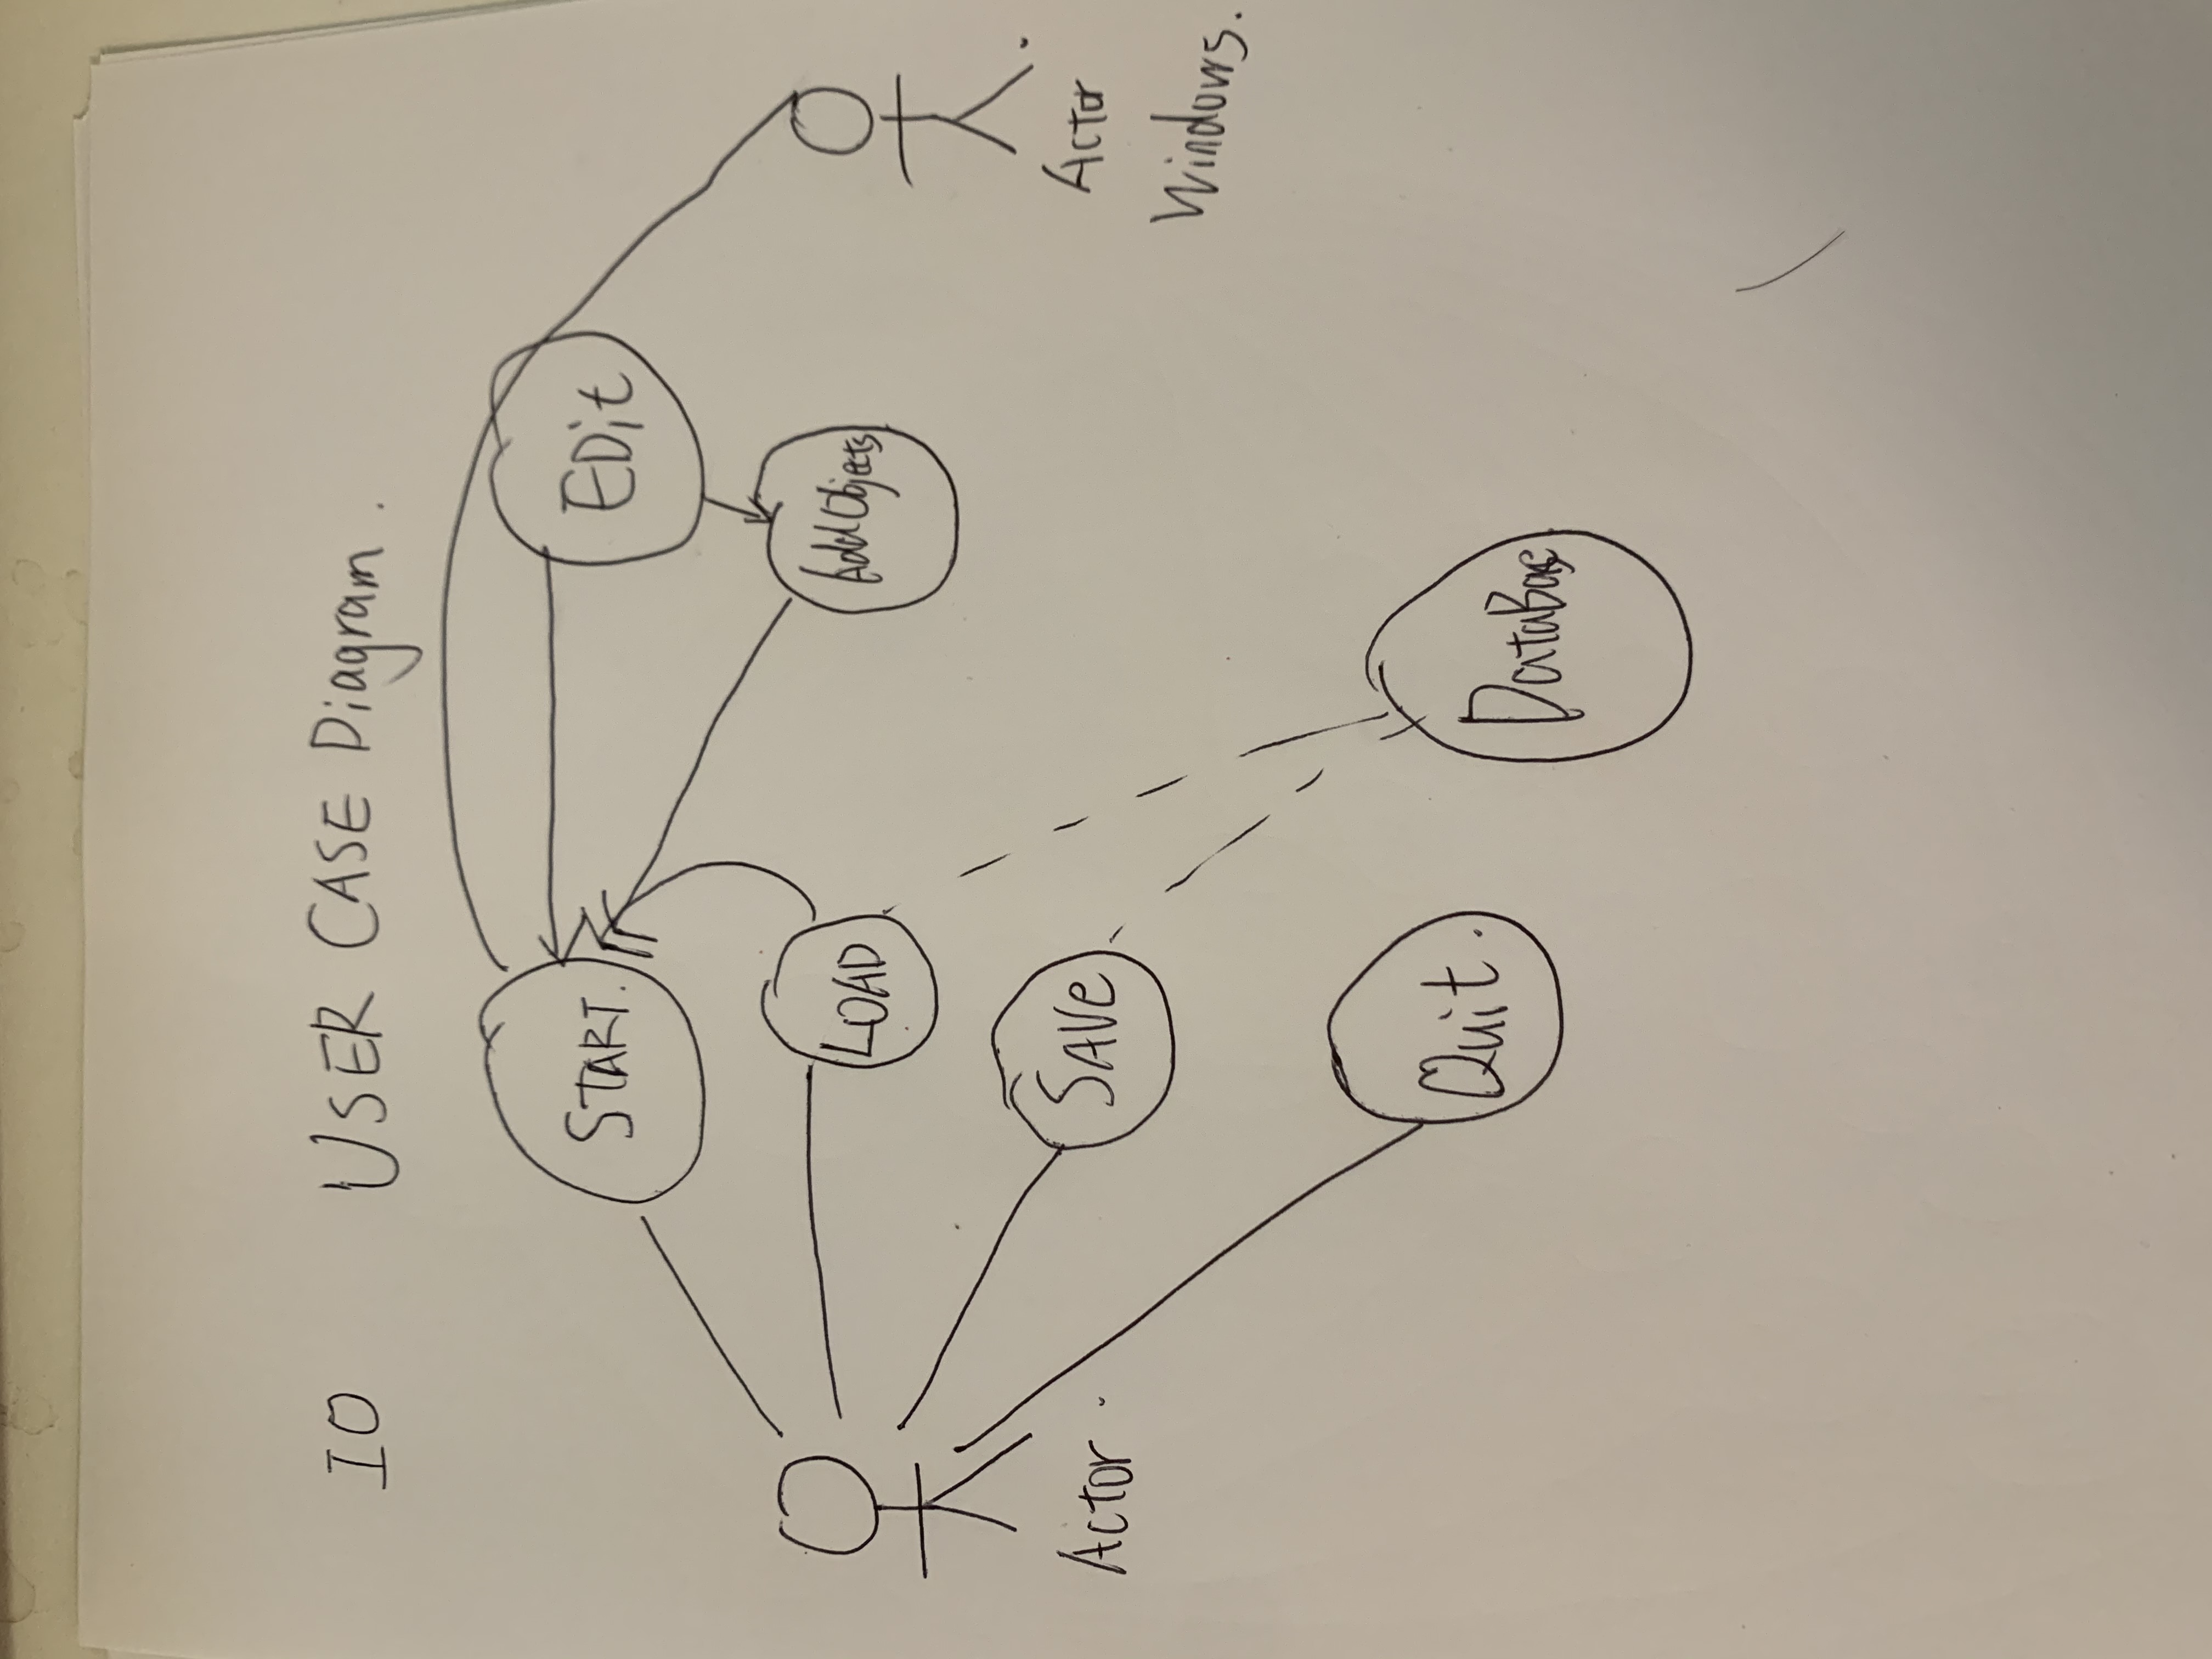 IO USER CASE Diagram.
START.
EDit
LOAD
AddObjects
Actor.
SAVe
Actor
Windows.
Quit.
DataBase